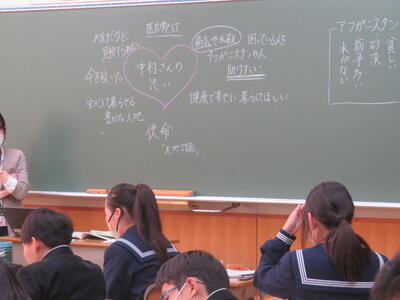 アフガニスタン
貧しい
砂漠
紛争多い
水がない
医師として
病気や水不足
困っている人を
アフガニスタンの人
助けたい
見捨てられない
中村さんの
思い
命を救いたい
安心して暮らせる
豊かな大地
健康で幸せに暮らしてほしい
使命